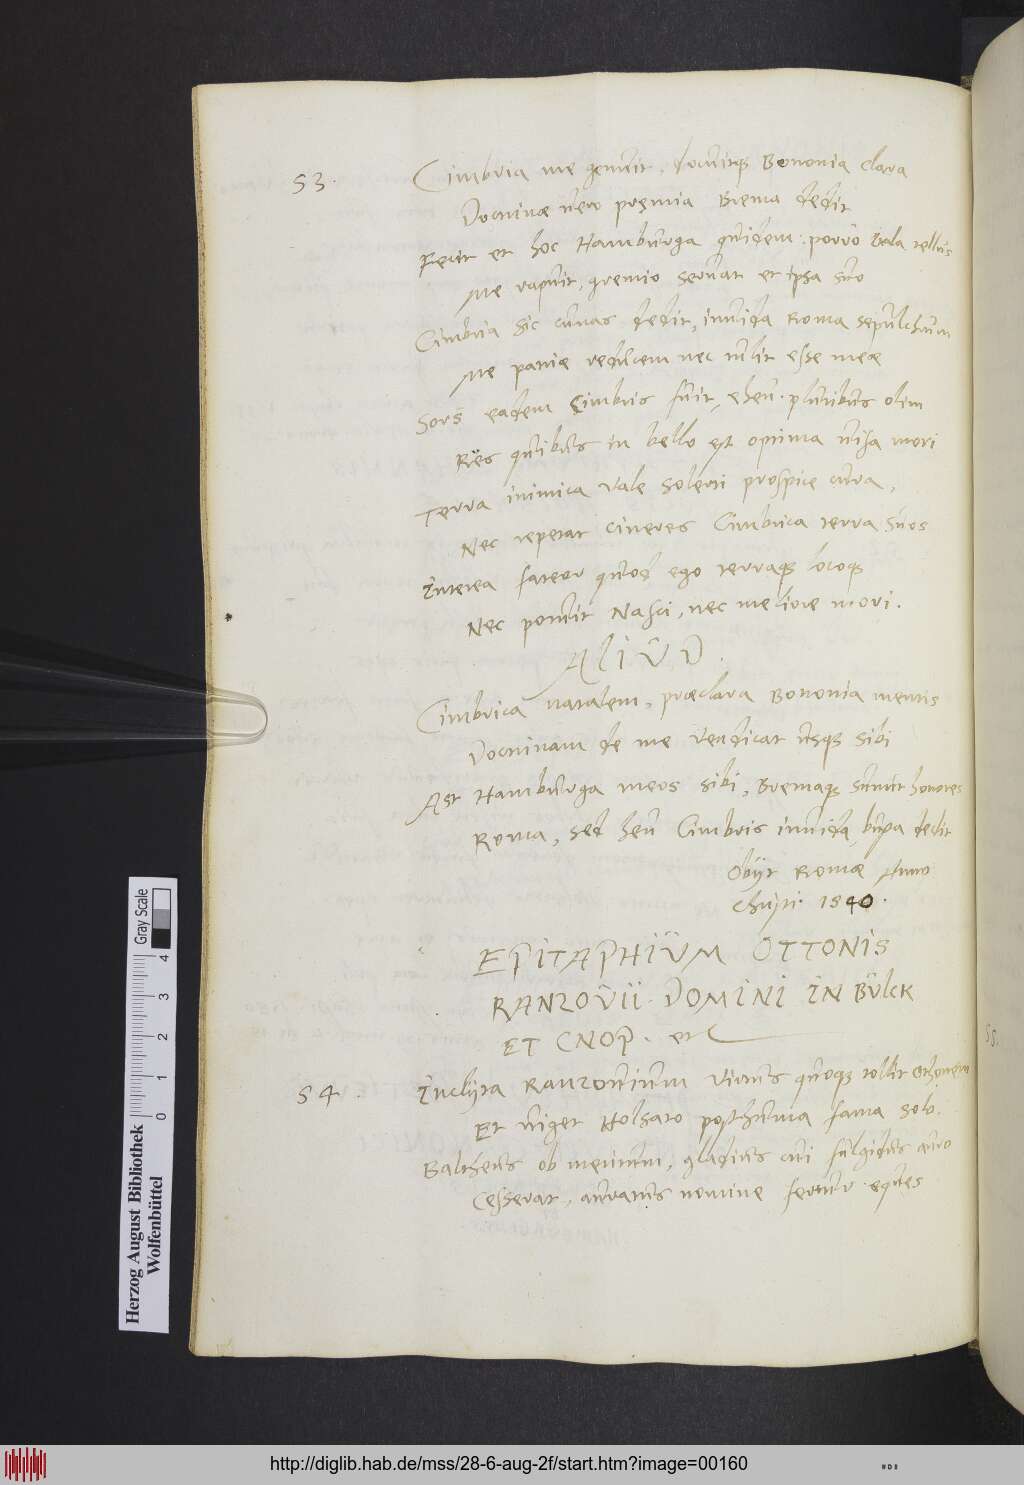 53.
Cimbria me genuit, docuitqꝫ Bononia clara
Doctrinæ vero pręmia Brema dedit
Fecit et hoc Hamburga quidem: porro Itala tellus
Me rapuit, gremio servat et ipsa suo
Cimbria sic cunas dedit, invida Roma sepulchrum
Me patriæ reducem nec tulit esse meæ
Sors eadem Cimbris fuit, eheu pluribus olim
Res quibus in bello est optima visa mori
Terra inimica vale solerti prospice cura,
Nec repetat cineres Cimbrica terra suos
Interea fateor quod ego terraqꝫ locoqꝫ
Nec potuit Nasci, nec meliore mori.
ALIUD.
Cimbrica natalem, præclara Bononia mentis
Doctrinam de me vendicat usqꝫ sibi
Ast Hamburga meos sibi, Bremaqꝫ sumit honores
Roma, sed heu Cimbris invida, busta dedit
Obijt Romæ Anno
Christi 1540.
EPITAPHIUM OTTONIS
RANZOVII DOMINI IN BÜLCK
ET CNOP. etc
54.
Inclyta Ranzovium virtus quoqꝫ tollit Othonem
Et viget Holsato posthuma fama solo.
Baltheus ob meritum, gladius cui fulgidus auro
Cesserat, auratus nomine fertur eques
Herzog August Bibliothek
Wolfenbüttel
0 1 2 3 4
Gray Scale
http://diglib.hab.de/mss/28-6-aug-2f/start.htm?image=00160